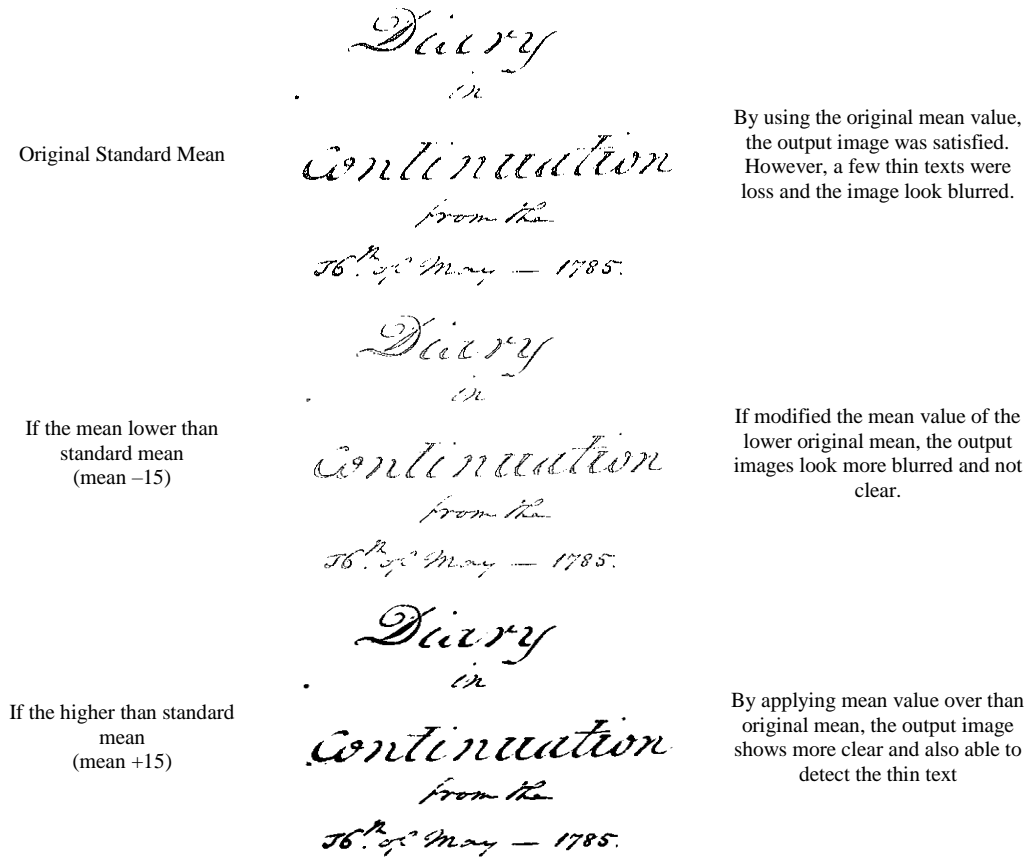 Original Standard Mean
Diary
in
continuation
from the
16th of May — 1785.
By using the original mean value,
the output image was satisfied.
However, a few thin texts were
loss and the image look blurred.
If the mean lower than
standard mean
(mean –15)
Diary
in
continuation
from the
16th of May — 1785.
If modified the mean value of the
lower original mean, the output
images look more blurred and not
clear.
If the higher than standard
mean
(mean +15)
Diary
in
continuation
from the
16th of May — 1785.
By applying mean value over than
original mean, the output image
shows more clear and also able to
detect the thin text